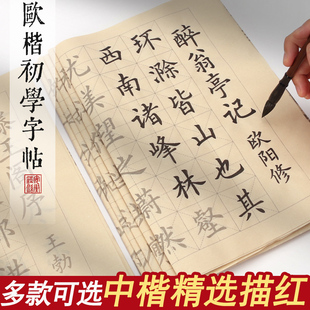 歐楷初學字帖
醉翁亭记
欧阳修
环滁皆山也其
西南诸峰林壑
美望之蔚然
王
序
王勃
洪
多款可选 中楷精选描红